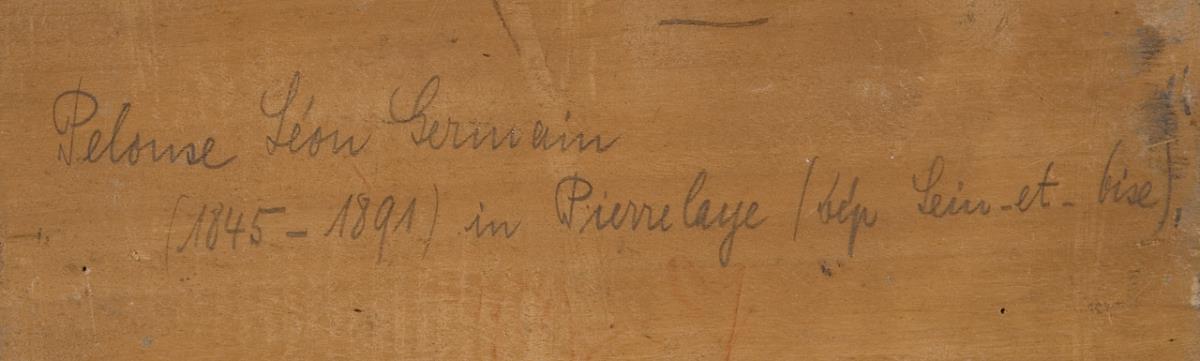 Pelouse Léon Germain
(1845 - 1891) in Pierrelaye (dép Sein-et-Oise)